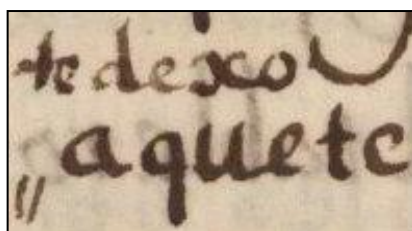 te dexo
„ aquete